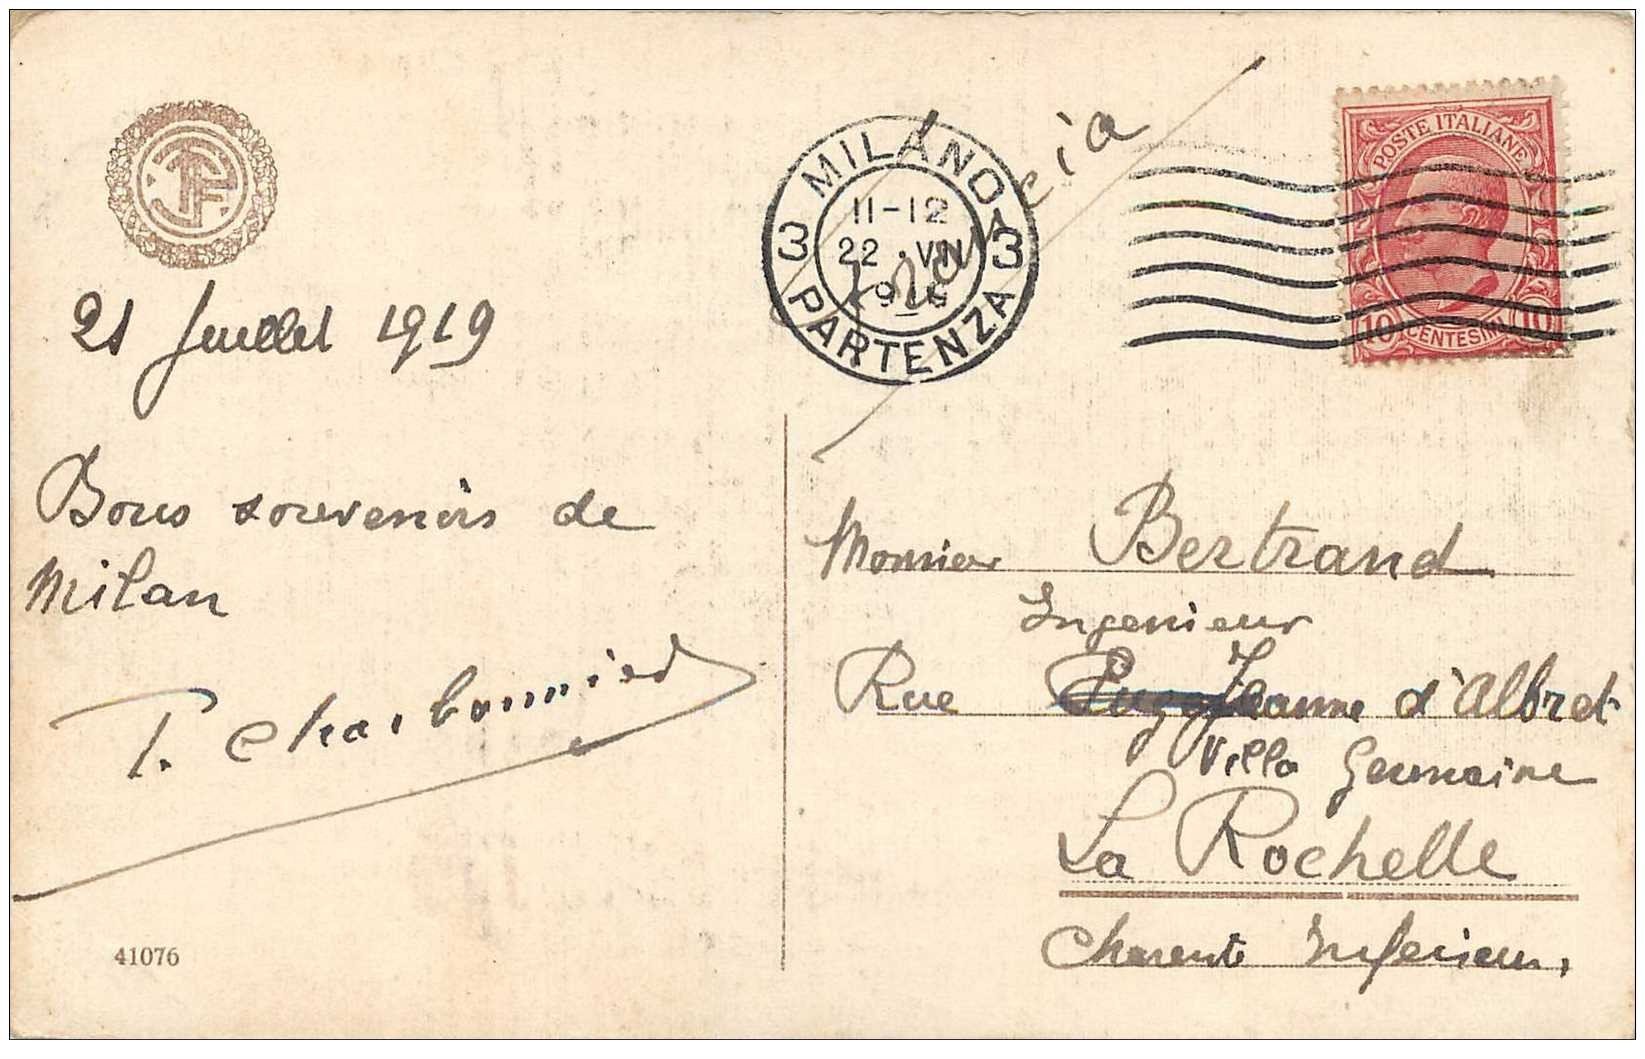 MILANO
3 11-12 3
22 · VII
PARTENZA
Francia
POSTE ITALIANE
10 CENTESIMI 10
21 Juillet 1919
Bons souvenirs de
Milan
P. Charbonnier
41076
Monsieur Bertrand
Ingenieur
Rue Jeanne d'Albret
Villa Germaine
La Rochelle
Charente Inferieure,